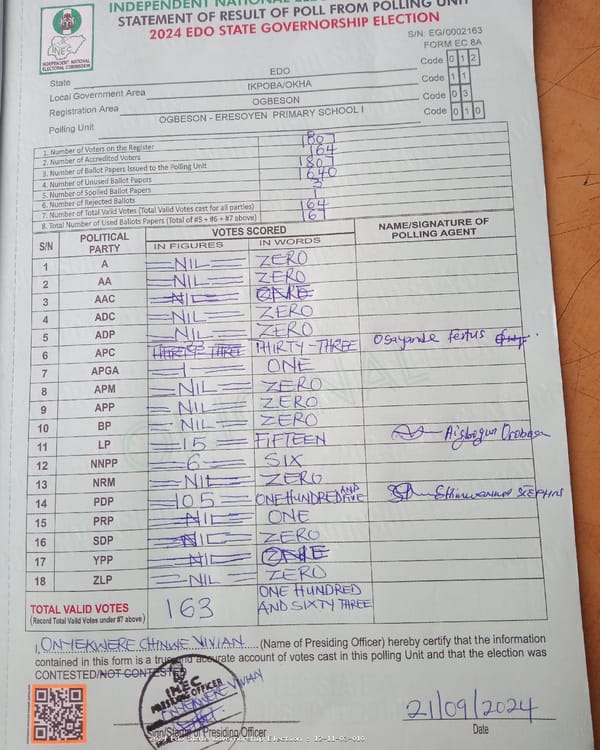 INDEPENDENT NATIONAL
STATEMENT OF RESULT OF POLL FROM POLLING UNIT
2024 EDO STATE GOVERNORSHIP ELECTION
INEC
INDEPENDENT NATIONAL
ELECTORAL COMMISSION
S/N: EG/0002163
FORM EC 8A
State EDO Code 0 1 2
Local Government Area IKPOBA/OKHA Code 1 1
Registration Area OGBESON Code 0 3
Polling Unit OGBESON - ERESOYEN PRIMARY SCHOOL I Code 0 1 0
1. Number of Voters on the Register 1807
2. Number of Accredited Voters 164
3. Number of Ballot Papers Issued to the Polling Unit 1807
4. Number of Unused Ballot Papers 1640
5. Number of Spoiled Ballot Papers 3
6. Number of Rejected Ballots
7. Number of Total Valid Votes (Total Valid Votes cast for all parties) 164
8. Total Number of Used Ballots Papers (Total of #5 + #6 + #7 above) 167
S/N POLITICAL PARTY VOTES SCORED NAME/SIGNATURE OF POLLING AGENT
IN FIGURES IN WORDS
1 A NIL ZERO
2 AA NIL ZERO
3 AAC NIL ONE
4 ADC NIL ZERO
5 ADP NIL ZERO
6 APC THIRTY-THREE Osayande Festus
7 APGA 1 ONE
8 APM NIL ZERO
9 APP NIL ZERO
10 BP NIL ZERO
11 LP 15 FIFTEEN
12 NNPP 6 SIX
13 NRM NIL ZERO
14 PDP 105 ONE HUNDRED AND FIVE
15 PRP NIL ONE
16 SDP NIL ZERO
17 YPP NIL ONE
18 ZLP NIL ZERO
TOTAL VALID VOTES 163 ONE HUNDRED
(Record Total Valid Votes under #7 above) AND SIXTY THREE
I, ONYEKWERE CHINWE VIVIAN (Name of Presiding Officer) hereby certify that the information
contained in this form is a true and accurate account of votes cast in this polling Unit and that the election was
CONTESTED/NOT CONTESTED
INEC
PRESIDING OFFICER
ONYEKWERE VIVIAN
Sign/Stamp of Presiding Officer
21/09/2024
Date